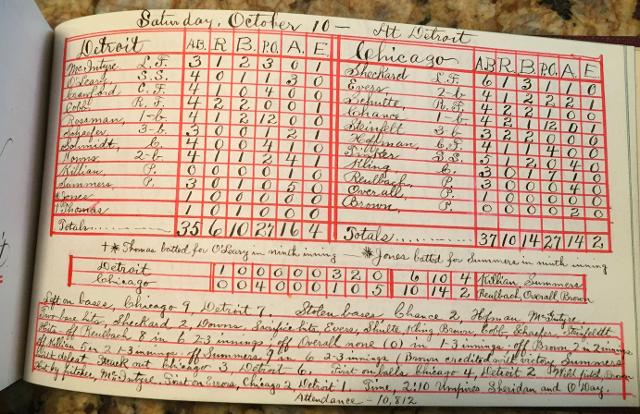 Saturday, October 10 — At Detroit
Detroit A.B. R. B. P.O. A. E.
McIntyre L.F. 3 1 2 3 0 1
O'Leary, S.S. 4 0 1 1 3 0
Crawford C.F. 4 1 0 4 0 0
Cobb R.F. 4 2 2 0 0 1
Rossman, 1-b 4 1 2 12 0 0
Schaefer 3-b. 3 0 0 1 2 1
Schmidt, C. 4 0 0 4 1 0
Downs 2-b 4 1 1 2 4 1
Killian P. 0 0 0 0 1 0
Summers, P. 3 0 1 0 5 0
*Jones 1 0 0 0 0 0
†Thomas 1 0 0 0 0
Totals 35 6 10 27 16 4
Chicago A.B. R. B. P.O. A. E
Sheckard L.F. 6 1 3 1 1 0
Evers 2-b 4 1 2 2 1
Schulte, R.F. 4 2 2 1 0 0
Chance 1-b 4 2 1 12 0 1
Steinfelt 3-b 3 2 2 0 0 0
Hoffman, C.F. 4 1 4 0 0
Tinker S.S. 5 1 2 0 4 0
Kling C. 3 0 1 7 1 0
Reulbach, P. 3 0 0 0 4 0
Overall, P. 0 0 0 0 0 0
Brown, P. 0 0 0 0 2 0
Totals 37 10 14 27 14 2
†* Thomas batted for O'Leary in ninth inning — *Jones batted for Summers in ninth inning
Detroit 1 0 0 0 0 0 3 2 0 6 10 4 Killian Summers
Chicago 0 0 4 0 0 0 1 0 5 10 14 2 Reulbach Overall Brown
Left on bases, Chicago 9 Detroit 7. Stolen bases, Chance 2 Hofman McIntyre.
Two-base hits, Sheckard 2, Downs, Sacrifice hits, Evers, Shulte, Kling Brown, Cobb Schaefer, Steinfeldt
Hits-off Reulbach 8 in 6 2-3 innings-off Overall none (0) in 1-3 innings-off Brown 2 in 2 innings
off Killian 5 in 2 1-3 innings-off Summers 9 in 6 2-3 innings (Brown credited with victory Summers
with defeat Struck out Chicago 3 Detroit-6. First on balls, Chicago 4, Detroit 2 Wild pitch, Brown
Hit by pitcher, McIntyre, First on Errors, Chicago 2 Detroit 1. Time, 2:10 Umpires Sheridan and O'Day.
Attendance — 10,812